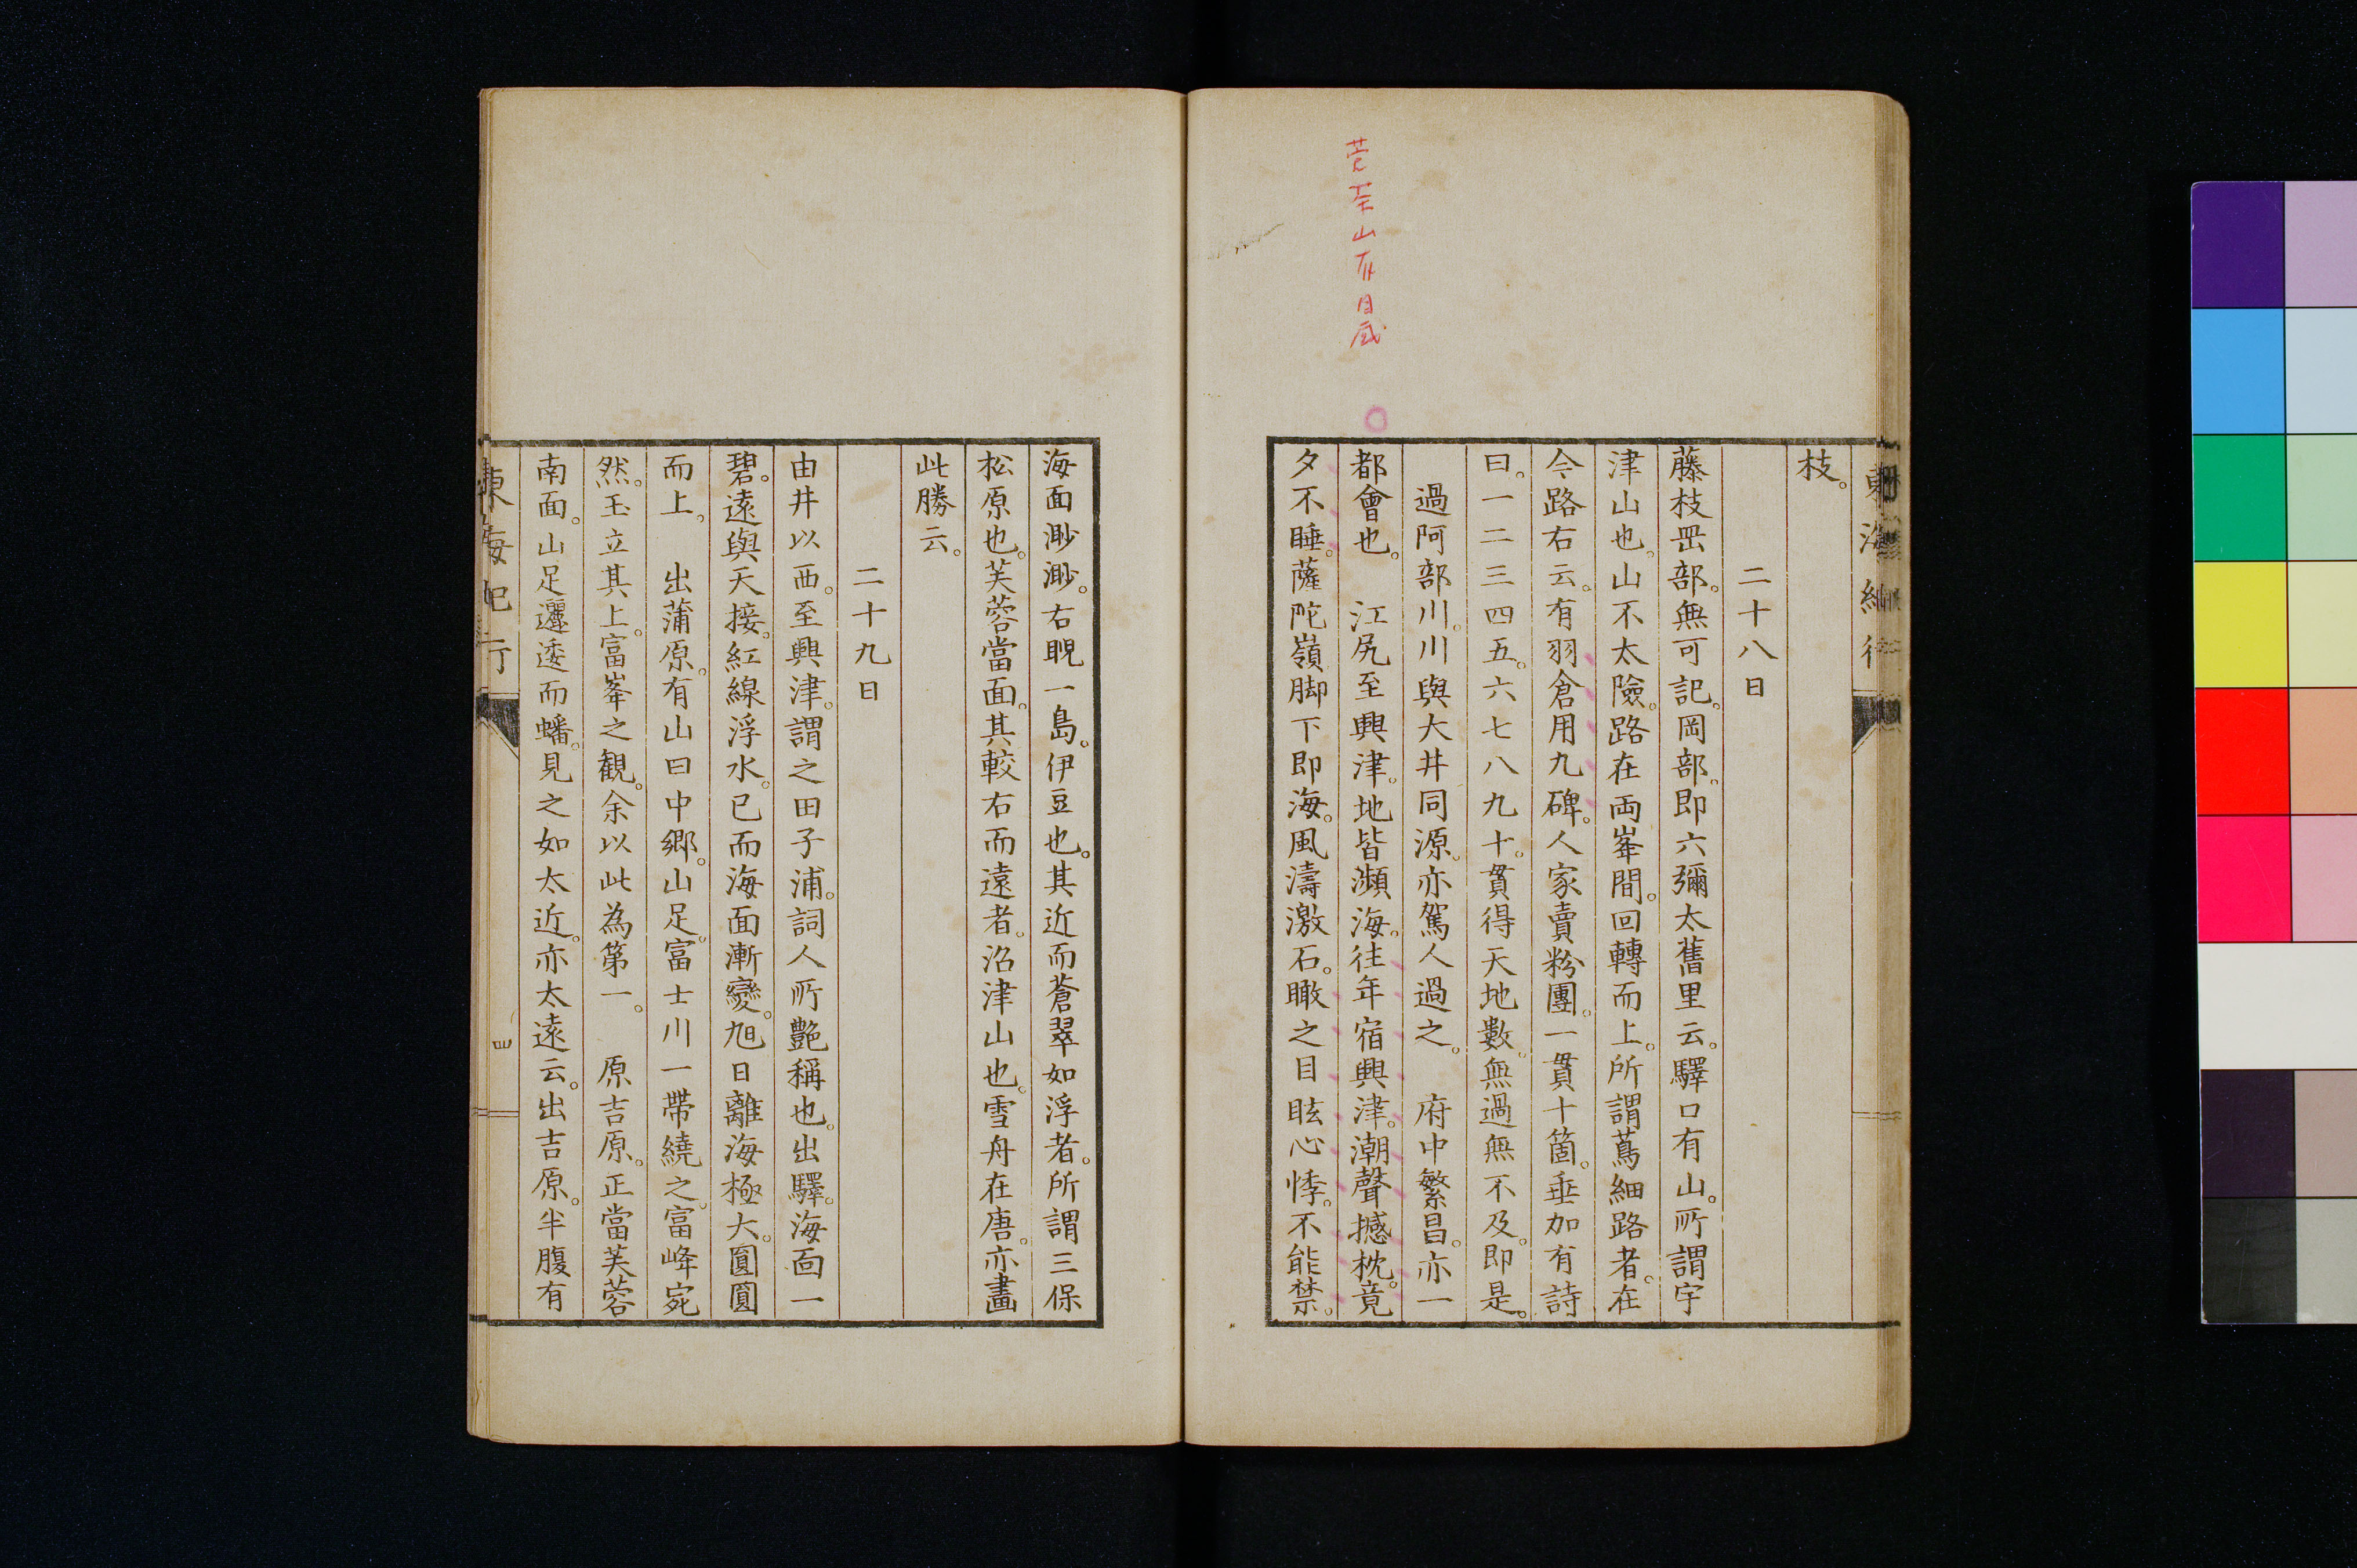 枝。
二十八日
藤枝罡部。無可記。岡部。即六彌太舊里云。驛口有山。所謂宇
津山也。山不太險。路在両峯間。回轉而上。所謂蔦細路者。在
今路右云。有羽倉用九碑。人家賣粉團。一貫十箇。垂加有詩
曰。一二三四五。六七八九十。貫得天地數。無過無不及。即是。
過阿部川。川與大井同源。亦駕人過之。 府中繁昌。亦一
都會也。 江尻至興津。地皆瀕海。往年宿興津。潮聲撼枕。竟
夕不睡。薩陀嶺脚下即海。風濤激石。瞰之目眩心悸。不能禁。
海面渺渺。右睨一島。伊豆也。其近而蒼翠如浮者。所謂三保
松原也。芙蓉當面。其較右而遠者。沼津山也。雪舟在唐。亦畫
此勝云。
二十九日
由井以西。至興津。謂之田子浦。詞人所艶稱也。出驛。海面一
碧。遠與天接。紅線浮水。已而海面漸變。旭日離海極大。圓圓
而上。 出蒲原。有山曰中郷。山足。富士川一帶繞之。富峰宛
然。玉立其上。富峯之観。余以此為第一。 原吉原。正當芙蓉
南面。山足邐逶而蟠。見之如太近。亦太遠云。出吉原。半腹有
東海紀行